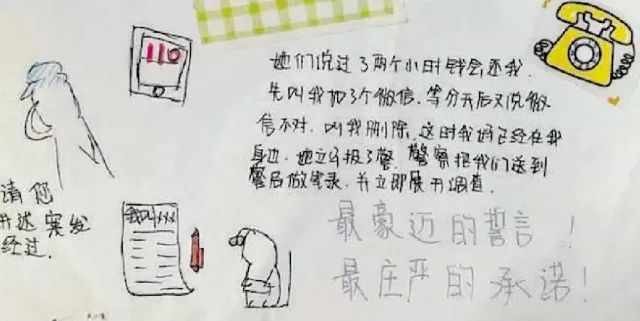 110
她们说过了两个小时钱会还我.
先叫我加了个微信.等分开后又说微
信不对.叫我删除.这时我妈已经在我
身边.她立即报了警.警察把我们送到
警局做笔录.并立即展开调查.
请您
讲述案发
经过.
我叫xxx
最豪迈的誓言!
最庄严的承诺!